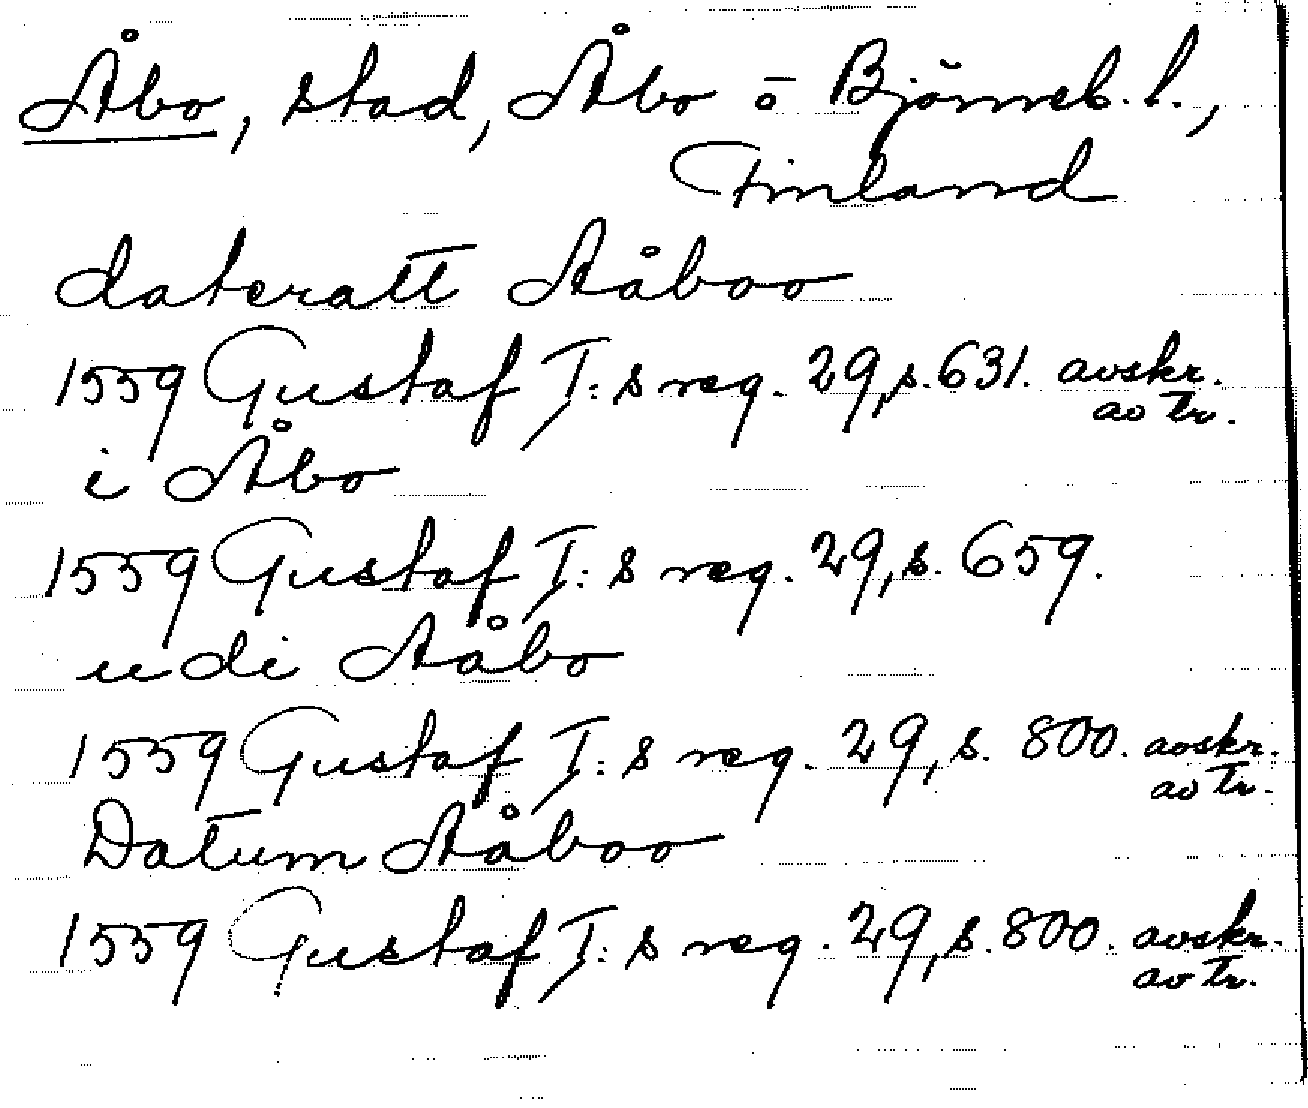 Åbo, stad, Åbo o Björneb. l.,
Finland
dateratt Aåboo
1559 Gustaf I:s reg. 29, s. 631. avskr.
av tr.
i Åbo
1559 Gustaf I:s reg. 29, s. 659.
udi Aåbo
1559 Gustaf I:s reg. 29, s. 800. avskr.
av tr.
Datum Aåboo
1559 Gustaf I:s reg. 29, s. 800. avskr.
av tr.